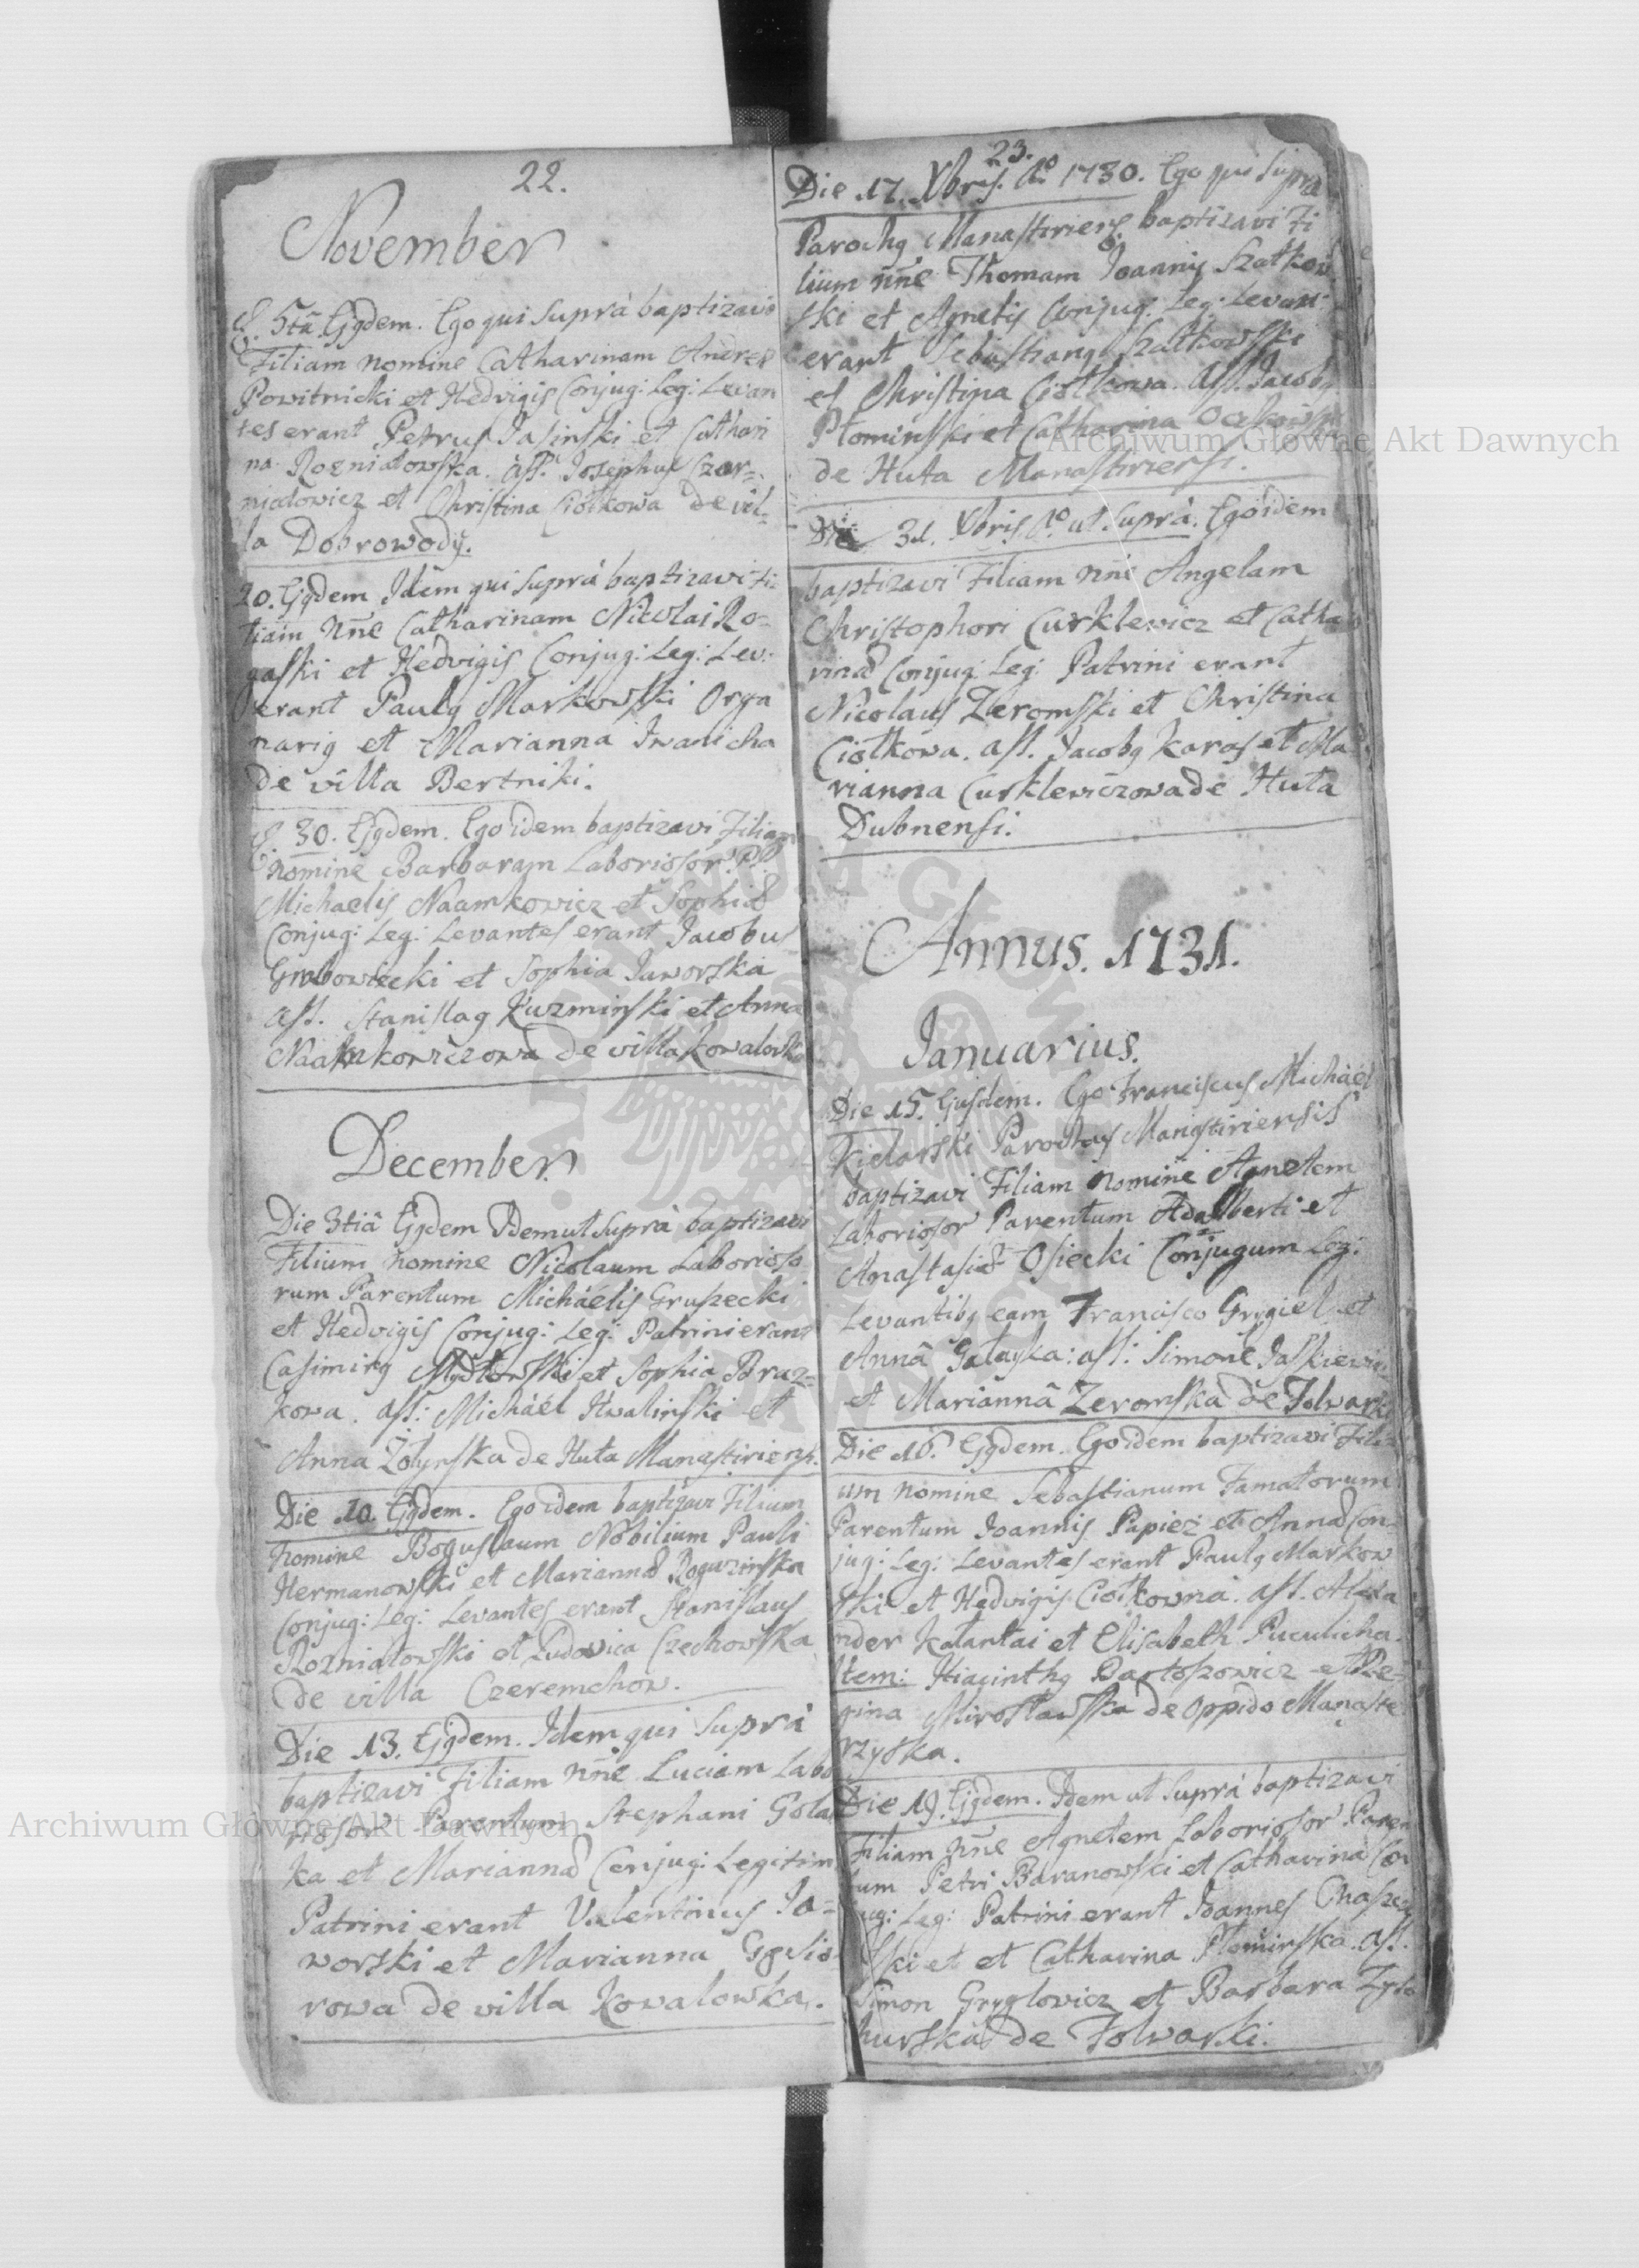 22.
November
5tâ Ejqdem. Ego qui suprà baptizavi
Filiam nomine Catharinam Andreæ
Powitnicki et Hedvigis Conjug: Leg: Levan
tes erant Petrus Jasinski et Cathari
na Rozniatowska. ass. Josephus Czar=
niatowicz et Christina Ciołkowa de vil=
la Dobrowody.
20. Ejqdem Idem qui suprà baptizavi Fi
liam nñe Catharinam Nicolai Ro=
gaski et Hedvigis Conjug: Leg: Lev:
erant Paulq Markowski Orga
nariq et Marianna Iwanicha
de villa Bertniki.
30. Ejqdem. Ego idem baptizavi Filiam
nomine Barbaram Laborisor PP.
Michaelis Naamkowicz et Sophiæ
Conjug: Leg: Levantes erant Jacobus
Grabowiecki et Sophia Jaworska
ass. Stanislaq Kuzminski et Anna
Naamkowiczowa de villa Kowalowka
December
Die 3tiâ Ejqdem Idem ut suprà baptizavi
Filium nomine Nicolaum Laborioso
rum Parentum Michaelis Gruszecki
et Hedvigis Conjug: Leg: Patrini erant
Casimirq et Sophia Braz=
kowa. ass: Michaël Kwalinski et
Anna Żołynska de Huta Manastiriens.
Die 10. Ejqdem. Ego idem baptizavi Filium
nomine Boguslaum Nobilium Pauli
Hermanowski et Mariannæ Roguzinska
Conjug: Leg: Levantes erant Stanislaus
Rozniatowski et Ludovica Czechowska
de villa Czeremchow.
Die 13. Ejqdem. Idem qui suprà
baptizavi Filiam nñe Luciam Labo
riosor Parentum Stephani Gola
ka et Mariannæ Conjug: Legitim
Patrini erant Valentinus Ja=
worski et Marianna
rowa de villa Kowalowka.
23.
Die 17. Xbris. Aº 1730. Ego qui supra
Parochq Manastiriens. baptizavi Fi
lium nñe Thomam Joannis Szatkow
ski et Agnetis Conjug: Leg: Levan:
erant Sebastianq Szatkowski
et Christina Ciołkowa. ass. Jacobq
Płominski et Catharina
de Huta Manastiriensi.
Die 31. Xbris Aº. ut suprà. Ego idem
baptizavi Filiam nñe Angelam
Christophori Curklewicz et Catha
rinæ Conjug: Leg: Patrini erant
Nicolaus Zeromski et Christina
Ciołkowa. ass. Jacobq Karas et Ma
rianna Curklewiczowa de Huta
Dubnensi.
Annus. 1731.
Januarius.
Die 15. Ejusdem. Ego Franciscus Michaël
Kielarski Parochus Manastiriensis
baptizavi Filiam nomine Agnetem
Laboriosor Parentum Adalberti et
Anastasiæ Osiecki Conjugum Leg:
Levantibq eam Francisco Grygiel et
Annâ Gałayka: ass: Simone Jaskiewicz
et Mariannâ Zeromska de Folwarki
Die 16. Ejqdem. Ego idem baptizavi Fili
um nomine Sebastianum Famatorum
Parentum Joannis Papiez et Annæ Con=
jug: Leg: Levantes erant Paulq Markow
ski et Hedvigis Ciołkowna. ass. Alexa
nder Kałantai et Elisabeth Puculicha.
Item: Hiacinthq Bartoszowicz et Re=
gina Mirosławska de oppido Manaste
rzyska.
Die 19. Ejqdem. Idem ut suprà baptizavi
Filiam nñe Agnetem Laboriosor Paren
tum Petri Baranowski et Catharinæ Con
jug: Leg: Patrini erant Joannes
ski et et Catharina Płominska. ass.
Simon Gryglovicz et Barbara
hurska de Folwarki.
Archiwum Główne Akt Dawnych
Archiwum Główne Akt Dawnych